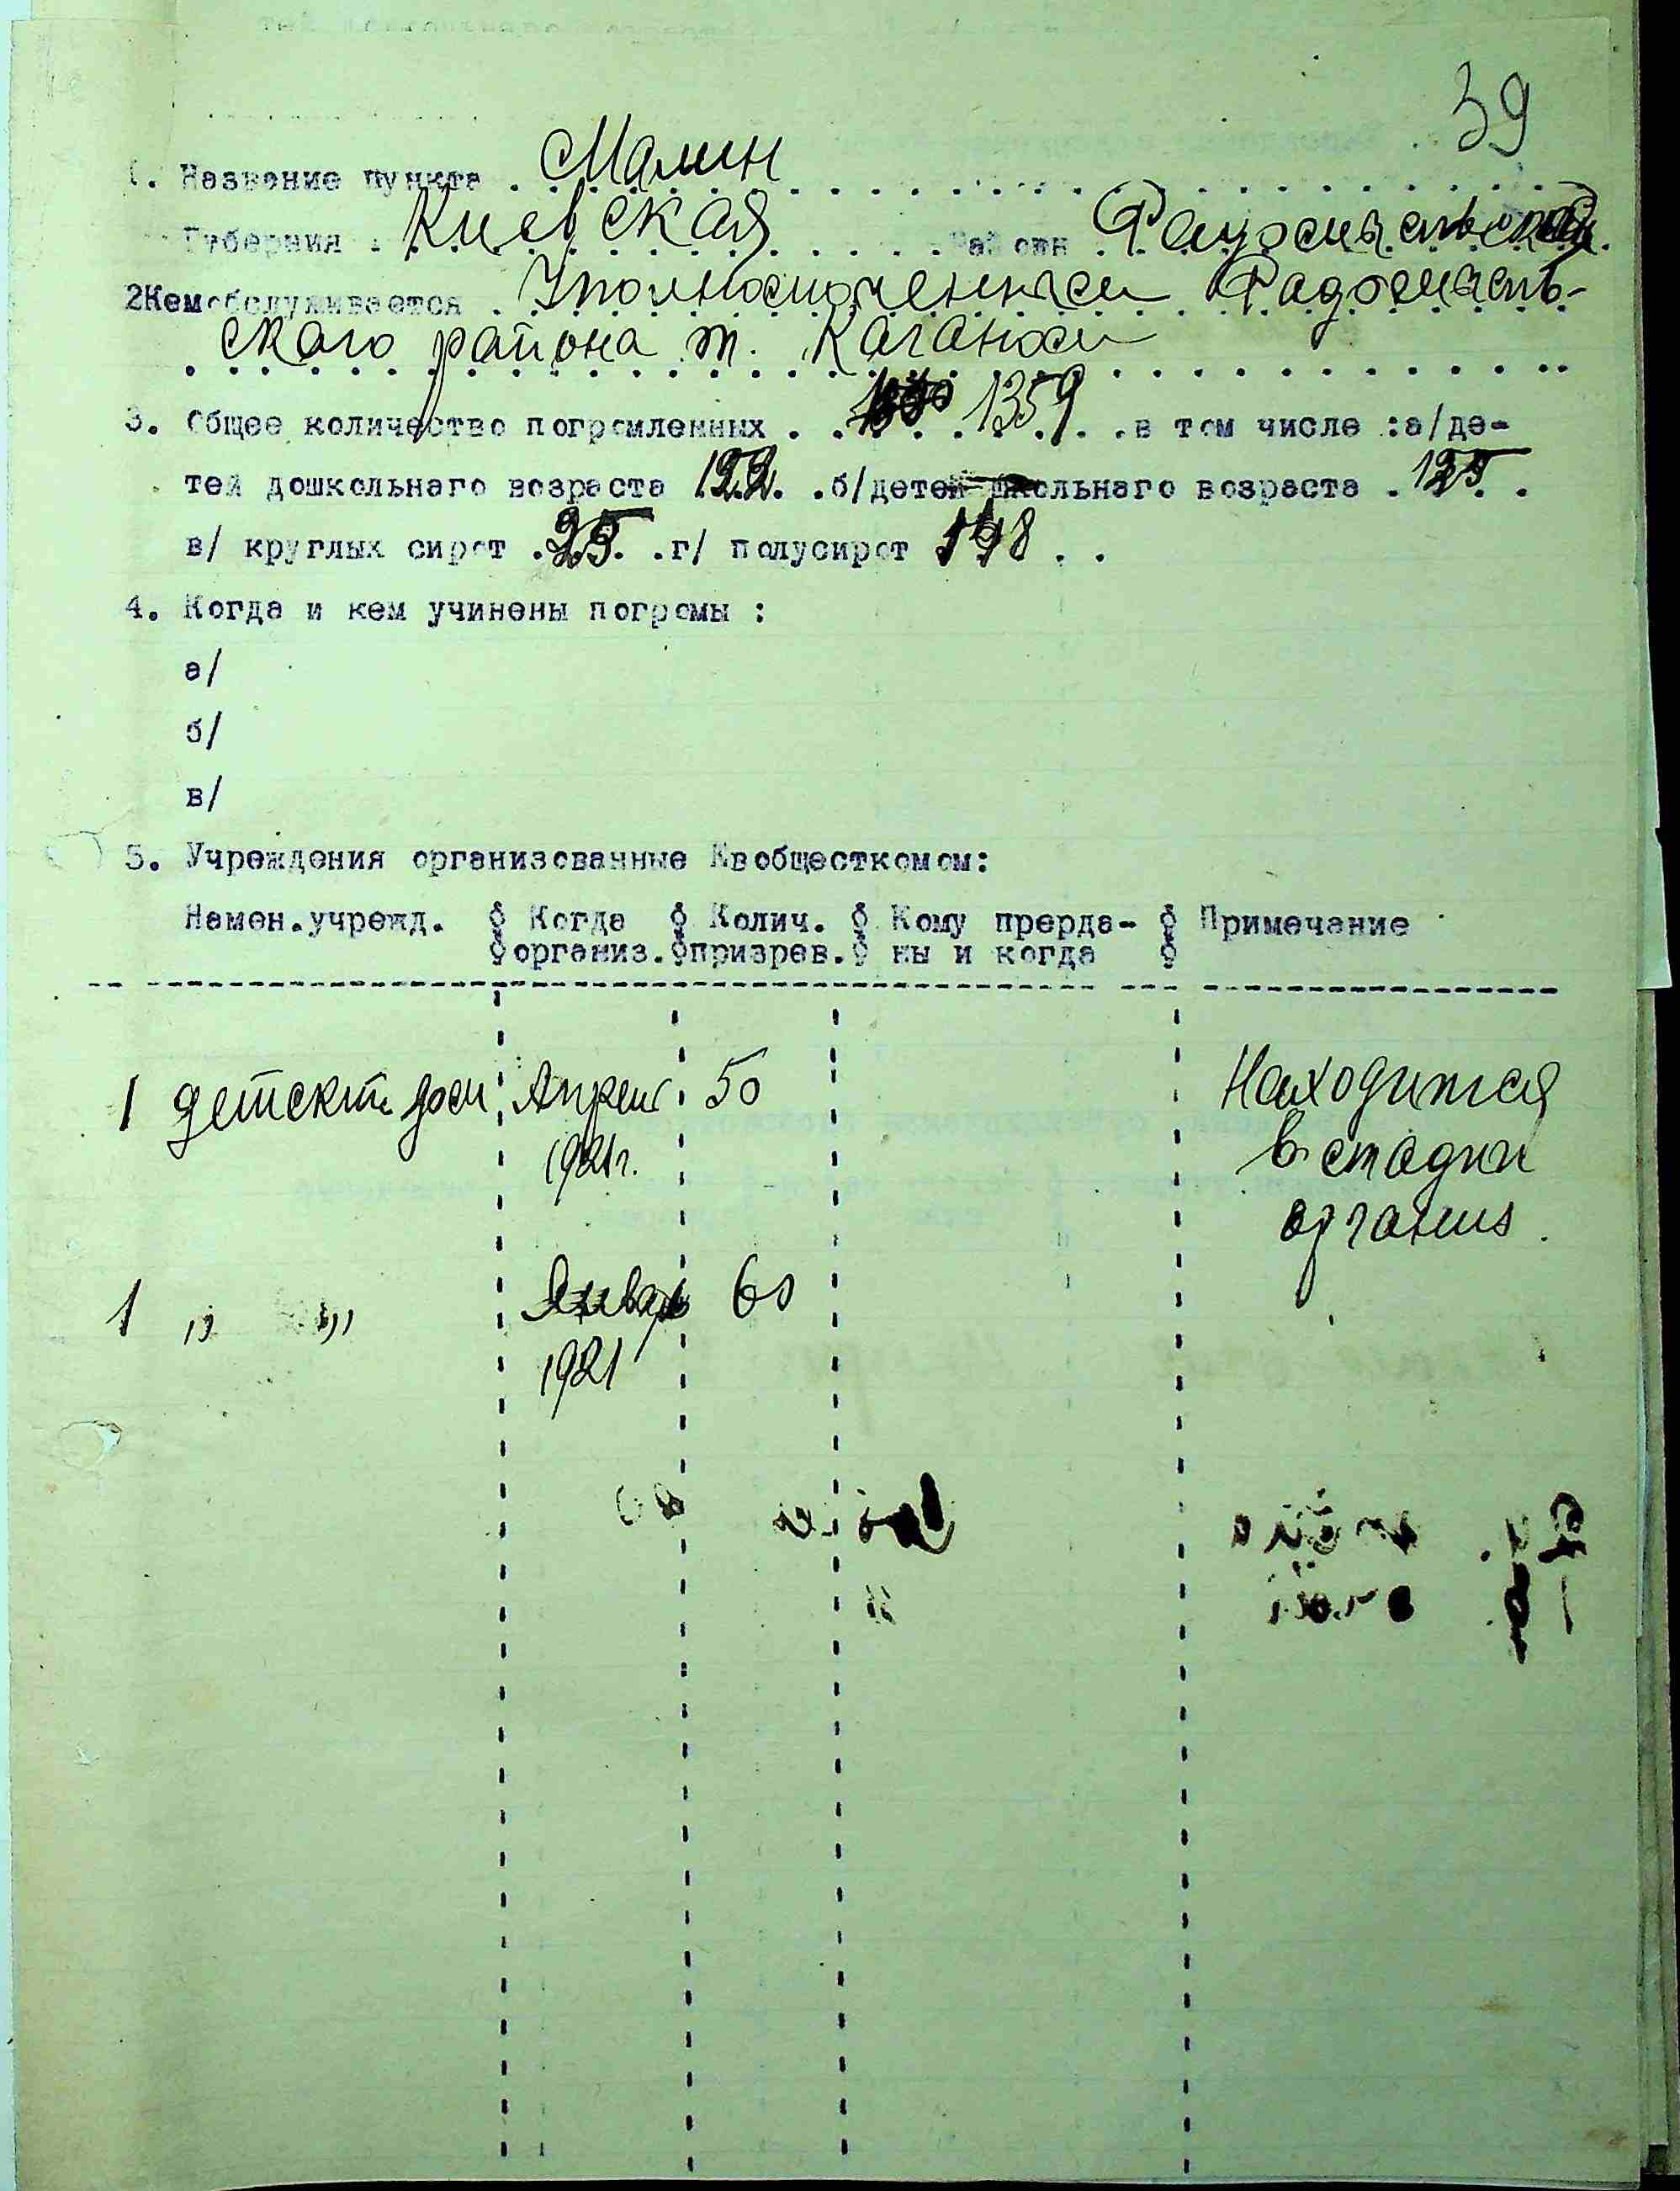 39
1. Название пункта . Малин
Губерния . Киевская . Район . Радомысльский
2Кем обслуживается . Уполномоченным Радомысль-
ского района т. Каганом
3. Общее количество погромленных . . 1359 . .в том числе :а/де-
тей дошкольнаго возраста 122. .б/детей школьнаго возраста .125. .
в/ круглых сирот .25. .г/ полусирот 148 . .
4. Когда и кем учинены погромы :
а/
б/
в/
5. Учреждения организованные Евобщесткомом:
Намен.учрежд. Когда Колич. Кому прерда- Примечание
организ. призрев. ны и когда
1 детский дом Апрель 50 Находится
1921г. в стадии
организ.
1 „ „ Январь 60
1921